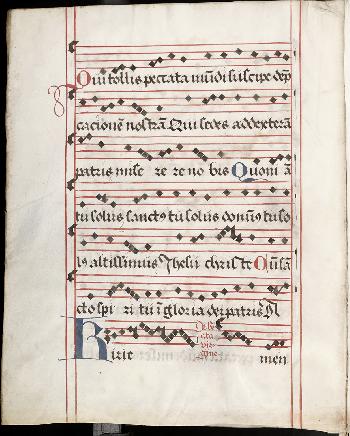 Qui tollis peccata mūdi suscipe dep̄
cacionē nostrā Qui sedes ad dexterā
patris mise re re no bis Quoni ā
tu solus sanctꝰ tu solus domīꝰ tu so
lꝰ altissimus Jhesu christe Cū sā
cto spi ri tu ī gloria dei patris A
Kirie men